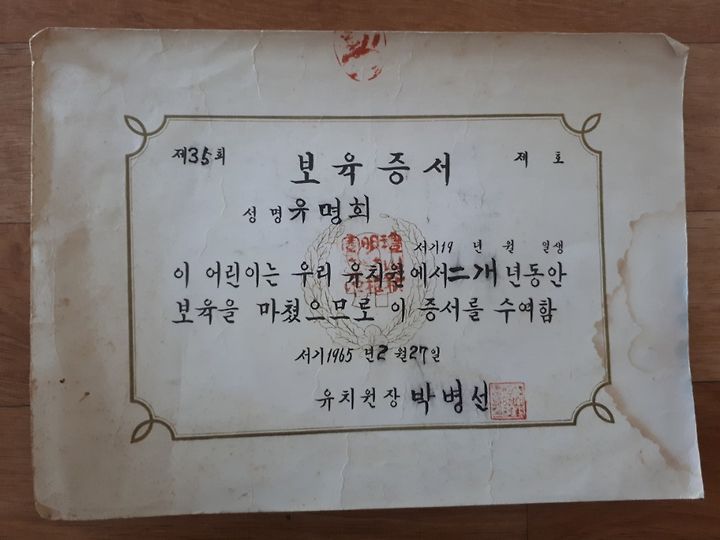 제35회
보육증서
제 호
성명 유명희
서기19 년 월 일생
이 어린이는 우리 유치원에서 二개년동안
보육을 마쳤으므로 이 증서를 수여함
서기1965년2월27일
유치원장 박병선